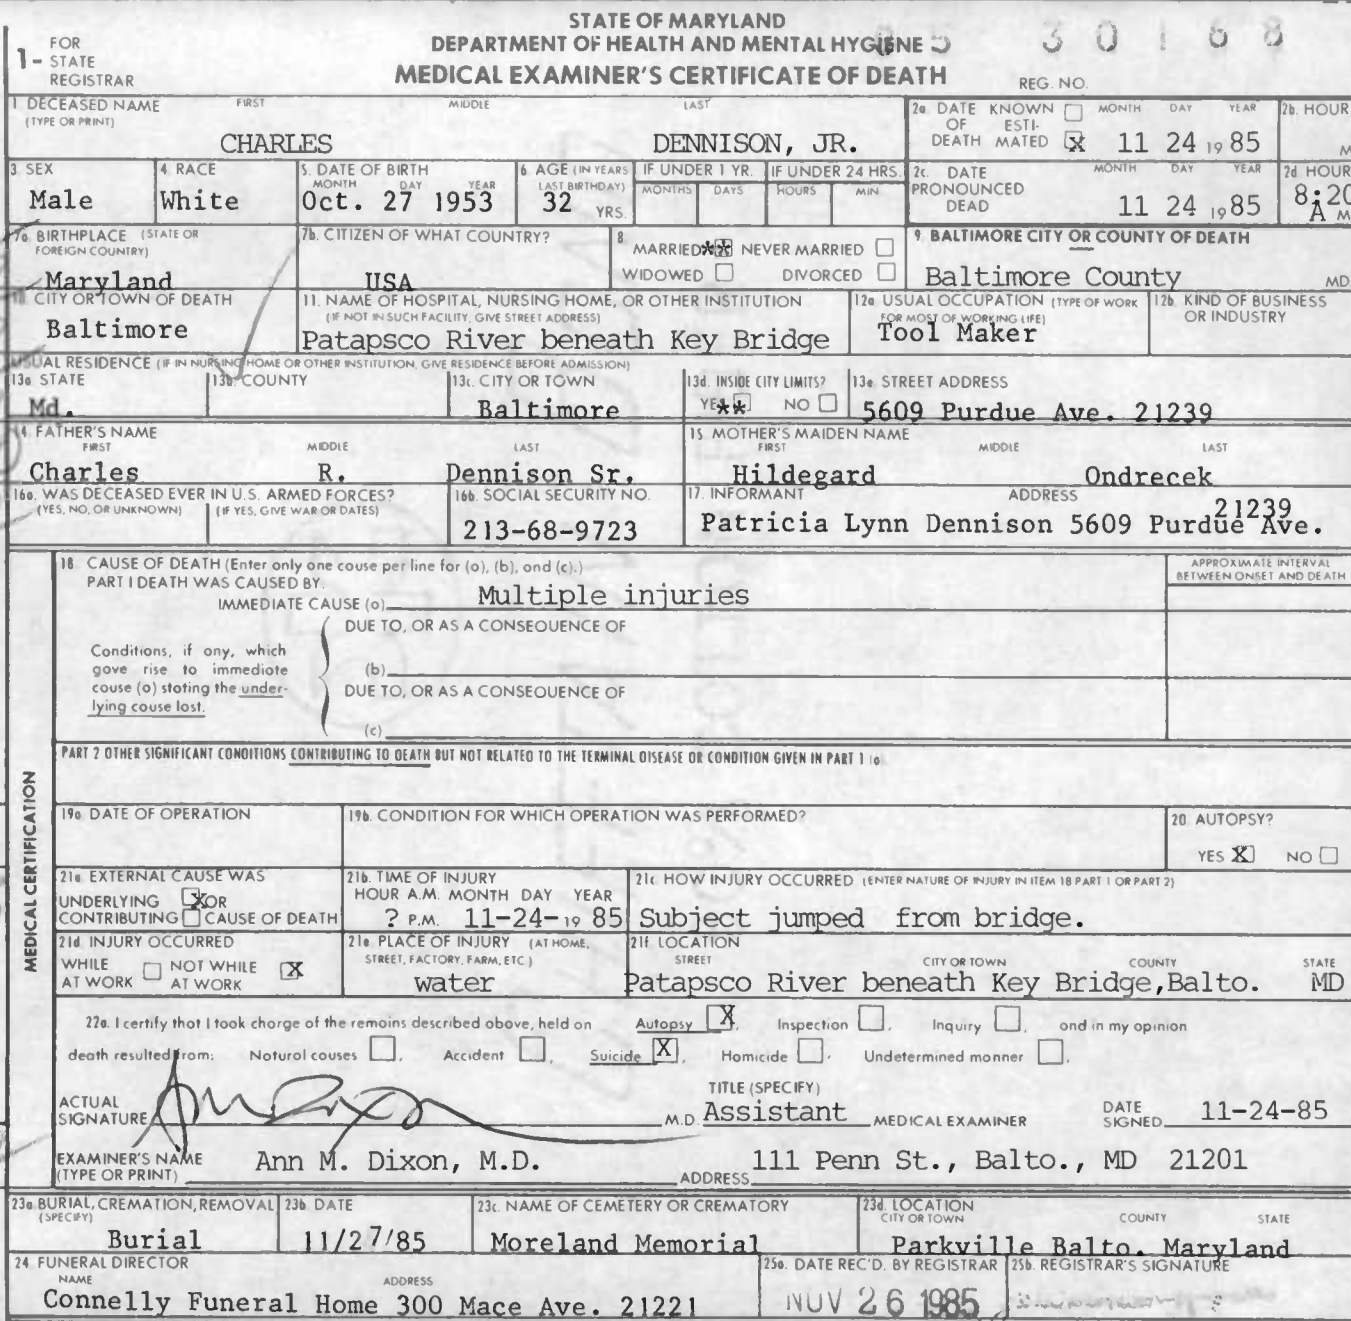 STATE OF MARYLAND
DEPARTMENT OF HEALTH AND MENTAL HYGIENE
MEDICAL EXAMINER'S CERTIFICATE OF DEATH
1- FOR STATE REGISTRAR
REG. NO. 85 30168
1 DECEASED NAME (TYPE OR PRINT) FIRST MIDDLE LAST
CHARLES DENNISON, JR.
2a DATE OF DEATH KNOWN ☐ ESTIMATED ☒ MONTH DAY YEAR
11 24 1985
2b. HOUR M
3 SEX
Male
4 RACE
White
5. DATE OF BIRTH MONTH DAY YEAR
Oct. 27 1953
6. AGE (IN YEARS LAST BIRTHDAY)
32 YRS.
IF UNDER 1 YR. MONTHS DAYS
IF UNDER 24 HRS. HOURS MIN.
2c. DATE PRONOUNCED DEAD MONTH DAY YEAR
11 24 1985
2d HOUR
8:20 A M
7a. BIRTHPLACE (STATE OR FOREIGN COUNTRY)
Maryland
7b. CITIZEN OF WHAT COUNTRY?
USA
8 MARRIED ** NEVER MARRIED ☐
WIDOWED ☐ DIVORCED ☐
9. BALTIMORE CITY OR COUNTY OF DEATH
Baltimore County MD
10. CITY OR TOWN OF DEATH
Baltimore
11. NAME OF HOSPITAL, NURSING HOME, OR OTHER INSTITUTION
(IF NOT IN SUCH FACILITY, GIVE STREET ADDRESS)
Patapsco River beneath Key Bridge
12a USUAL OCCUPATION (TYPE OF WORK FOR MOST OF WORKING LIFE)
Tool Maker
12b. KIND OF BUSINESS OR INDUSTRY
USUAL RESIDENCE (IF IN NURSING HOME OR OTHER INSTITUTION, GIVE RESIDENCE BEFORE ADMISSION)
13a STATE
Md.
13b. COUNTY
13c. CITY OR TOWN
Baltimore
13d. INSIDE CITY LIMITS?
YES ** NO ☐
13e STREET ADDRESS
5609 Purdue Ave. 21239
14. FATHER'S NAME FIRST MIDDLE LAST
Charles R. Dennison Sr.
15. MOTHER'S MAIDEN NAME FIRST MIDDLE LAST
Hildegard Ondrecek
16a. WAS DECEASED EVER IN U.S. ARMED FORCES?
(YES, NO, OR UNKNOWN) (IF YES, GIVE WAR OR DATES)
16b. SOCIAL SECURITY NO.
213-68-9723
17. INFORMANT ADDRESS
Patricia Lynn Dennison 5609 Purdue Ave. 21239
MEDICAL CERTIFICATION
18. CAUSE OF DEATH (Enter only one cause per line for (a), (b), and (c).)
PART I DEATH WAS CAUSED BY:
IMMEDIATE CAUSE (a) Multiple injuries
APPROXIMATE INTERVAL BETWEEN ONSET AND DEATH
Conditions, if any, which gave rise to immediate cause (a) stating the underlying cause last.
DUE TO, OR AS A CONSEQUENCE OF
(b)
DUE TO, OR AS A CONSEQUENCE OF
(c)
PART 2 OTHER SIGNIFICANT CONDITIONS CONTRIBUTING TO DEATH BUT NOT RELATED TO THE TERMINAL DISEASE OR CONDITION GIVEN IN PART 1 (a)
19a. DATE OF OPERATION
19b. CONDITION FOR WHICH OPERATION WAS PERFORMED?
20. AUTOPSY?
YES X NO ☐
21a. EXTERNAL CAUSE WAS
UNDERLYING X OR
CONTRIBUTING ☐ CAUSE OF DEATH
21b. TIME OF INJURY
HOUR A.M. MONTH DAY YEAR
? P.M. 11-24-1985
21c. HOW INJURY OCCURRED (ENTER NATURE OF INJURY IN ITEM 18 PART 1 OR PART 2)
Subject jumped from bridge.
21d. INJURY OCCURRED
WHILE AT WORK ☐ NOT WHILE AT WORK X
21e. PLACE OF INJURY (AT HOME, STREET, FACTORY, FARM, ETC.)
water
21f. LOCATION STREET CITY OR TOWN COUNTY STATE
Patapsco River beneath Key Bridge, Balto. MD
22a. I certify that I took charge of the remains described above, held on Autopsy X, Inspection ☐, Inquiry ☐, and in my opinion
death resulted from: Natural causes ☐, Accident ☐, Suicide X, Homicide ☐, Undetermined manner ☐.
ACTUAL SIGNATURE M.D.
TITLE (SPECIFY)
Assistant MEDICAL EXAMINER
DATE SIGNED 11-24-85
EXAMINER'S NAME (TYPE OR PRINT) Ann M. Dixon, M.D.
ADDRESS 111 Penn St., Balto., MD 21201
23a BURIAL, CREMATION, REMOVAL (SPECIFY)
Burial
23b DATE
11/27/85
23c. NAME OF CEMETERY OR CREMATORY
Moreland Memorial
23d. LOCATION CITY OR TOWN COUNTY STATE
Parkville Balto. Maryland
24. FUNERAL DIRECTOR NAME ADDRESS
Connelly Funeral Home 300 Mace Ave. 21221
25a. DATE REC'D. BY REGISTRAR
NOV 26 1985
25b. REGISTRAR'S SIGNATURE